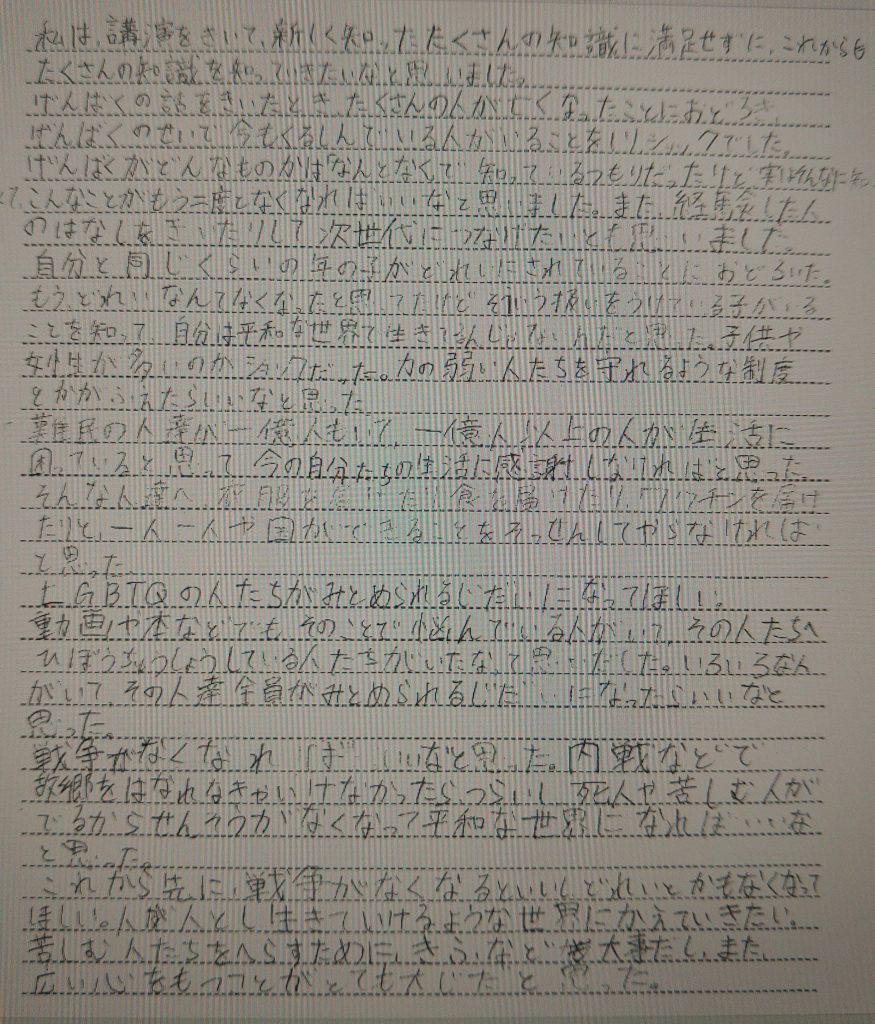 私は、講演をきいて、新しく知ったたくさんの知識に満足せずに、これからも
たくさんの知識を知っていきたいなと思いました。
げんばくの話をきいたとき、たくさんの人が亡くなったことにおどろき、
げんばくのせいで今もくるしんでいる人がいることをしりショックでした。
げんばくがどんなものかは「なんとなくで知っているつもりだったけど実はそんなに知
こんなことがもう二度となくなればいいなと思いました。また経験した人
のはなしをきいたりして次世代につなげたいとも思いました。
自分と同じくらいの年の子がどれいにされていることにおどろいた。
もうどれいなんてなくなったと思ってたけどそういう扱いをうけている子がいる
ことを知って、自分は平和な世界で生きてるんじゃないんだと思った。子供や
女性が多いのがショックだった。力の弱い人たちを守れるような制度
とかがふえたらいいなと思った
難民の人達が一億人もいて、一億人以上の人が生活に
困っていると思って今の自分たちの生活に感謝しなければと思った。
そんな人達へ、衣服を届けたり食を届けたり、ワクチンを届け
たりと、一人一人や国ができることをそっせんしてやらなければ
と思った。
LGBTQの人たちがみとめられるじだいになってほしい。
動画や本などでも、そのことで悩んでいる人がいて、その人たちへ
ひぼうちゅうしょうしている人たちがいたなって思いだした。いろいろな人
がいて、その人達全員がみとめられるじだいになったらいいなと
思った。
戦争がなくなればいいなと思った。内戦などで
故郷をはなれなきゃいけなかったらつらいし、死人や苦しむ人が
でるからせんそうがなくなって平和な世界になればいいな
と思った。
これから先に、戦争がなくなるといいし、どれいとかもなくなって
ほしい。人が人とし生きていけるような世界にかえていきたい。
苦しむ人たちをへらすために、きふなど大事だし、また、
広い心をもつことがとても大じだと思った。